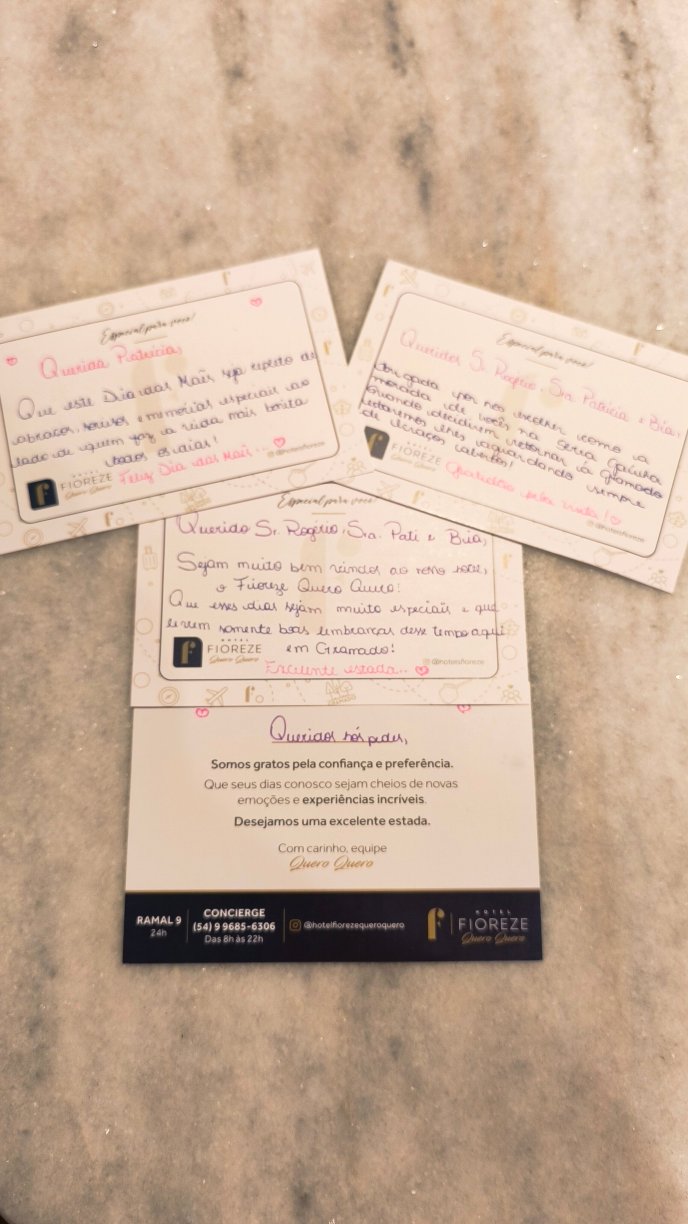 Especial para você!
Querida Patrícia,
Que este Dia das Mães seja repleto de
abraços, sorrisos e memórias especiais ao
lado de quem faz a vida mais bonita
todos os dias!
Feliz Dia das Mães...
HOTEL
FIOREZE
Quero Quero
@hoteisfioreze
Especial para você!
Queridos Sr. Rogério, Sra. Patrícia e Bia,
Obrigada por nos escolher como a
morada de vocês na Serra Gaúcha
Quando decidirem retornar a Gramado
estaremos lhes aguardando sempre
de braços abertos!
Gratidão pela visita!
HOTEL
FIOREZE
Quero Quero
@hoteisfioreze
Especial para você!
Querido Sr. Rogério, Sra. Pati e Bia,
Sejam muito bem vindos ao nosso hotel,
o Fioreze Quero Quero!
Que esses dias sejam muito especiais e que
levem somente boas lembranças desse tempo aqui
em Gramado!
Excelente estada...
HOTEL
FIOREZE
Quero Quero
@hoteisfioreze
Queridos hóspedes,
Somos gratos pela confiança e preferência.
Que seus dias conosco sejam cheios de novas
emoções e experiências incríveis.
Desejamos uma excelente estada.
Com carinho, equipe
Quero Quero
RAMAL 9
24h
CONCIERGE
(54) 9 9685-6306
Das 8h às 22h
@hotelfiorezequeroquero
HOTEL
FIOREZE
Quero Quero